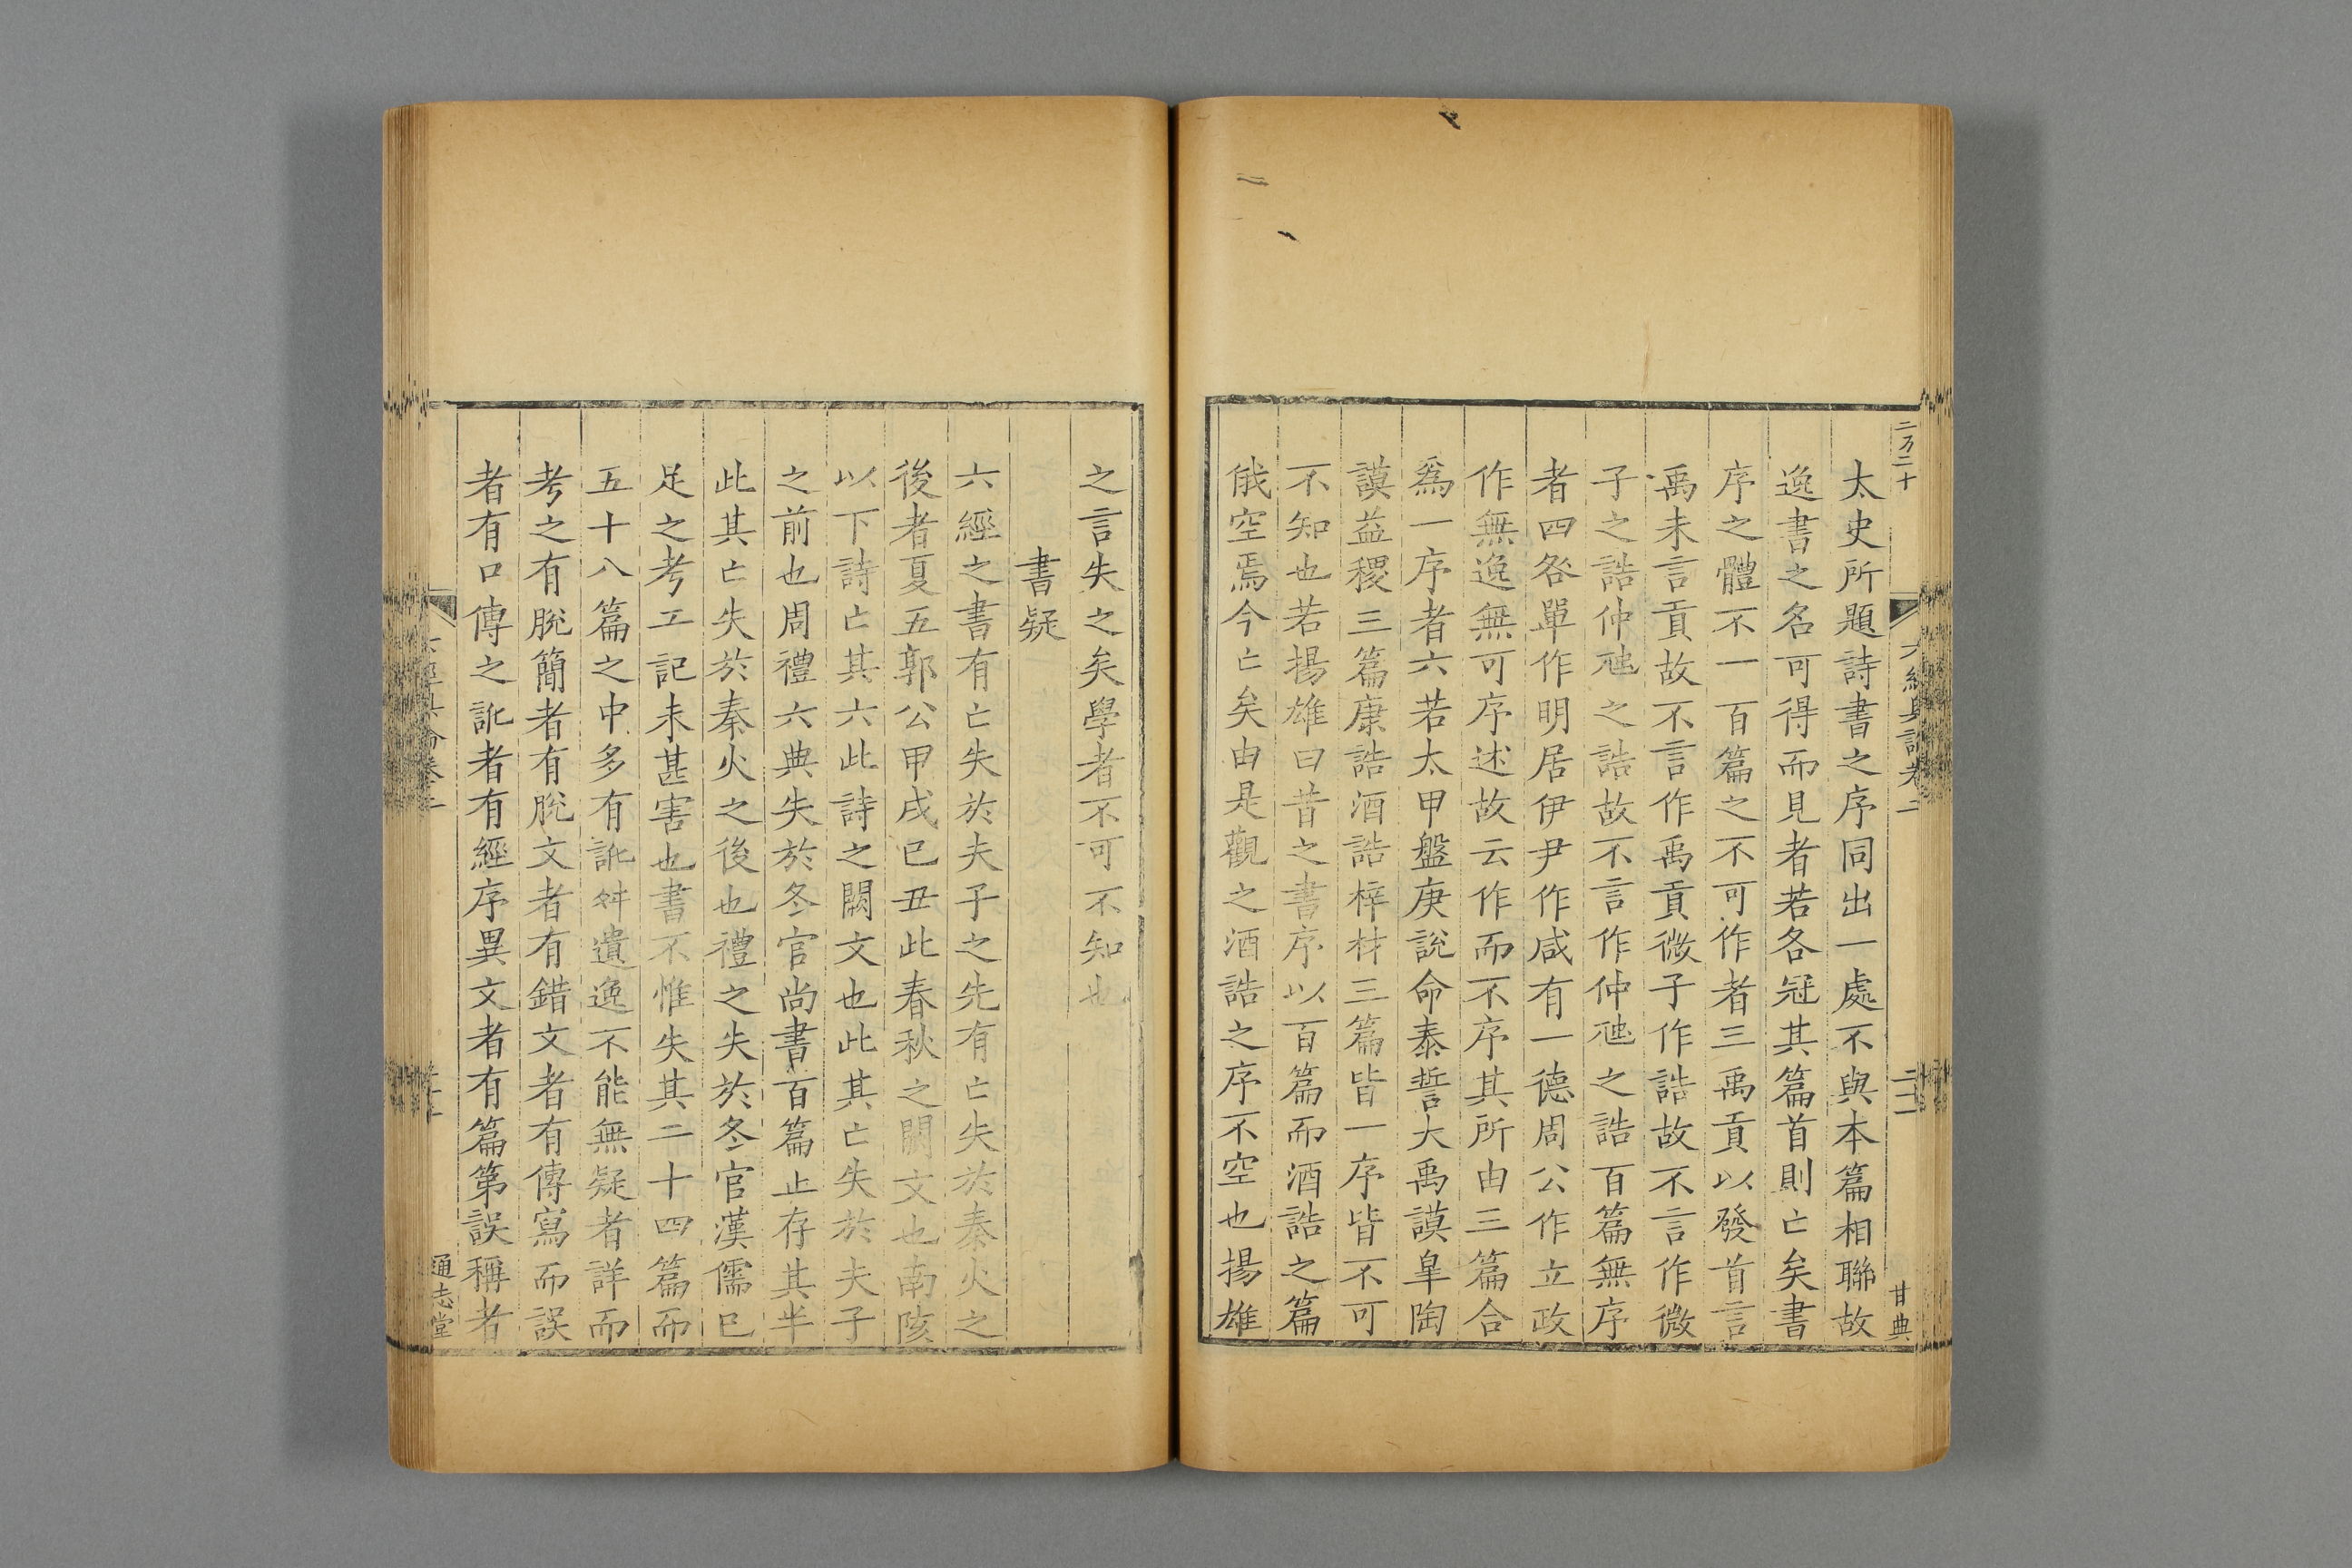 二万二十
六經奧論卷二
二二
甘典
太史所題詩書之序同出一處不與本篇相聯故
逸書之名可得而見者若各冠其篇首則亡矣書
序之體不一百篇之不可作者三禹貢以發首言
禹未言貢故不言作禹貢微子作誥故不言作微
子之誥仲虺之誥故不言作仲虺之誥百篇無序
者四咎單作明居伊尹作咸有一德周公作立政
作無逸無可序述故云作而不序其所由三篇合
爲一序者六若太甲盤庚說命泰誓大禹謨皐陶
謨益稷三篇康誥酒誥梓材三篇皆一序皆不可
不知也若揚雄曰昔之書序以百篇而酒誥之篇
俄空焉今亡矣由是觀之酒誥之序不空也揚雄
之言失之矣學者不可不知也
書疑
六經之書有亡失於夫子之先有亡失於秦火之
後者夏五郭公甲戌已丑此春秋之闕文也南陔
以下詩亡其六此詩之闕文也此其亡失於夫子
之前也周禮六典失於冬官尚書百篇止存其半
此其亡失於秦火之後也禮之失於冬官漢儒已
足之考工記未甚害也書不惟失其二十四篇而
五十八篇之中多有訛舛遺逸不能無疑者詳而
考之有脫簡者有脫文者有錯文者有傳寫而誤
者有口傳之訛者有經序異文者有篇第誤稱者
通志堂